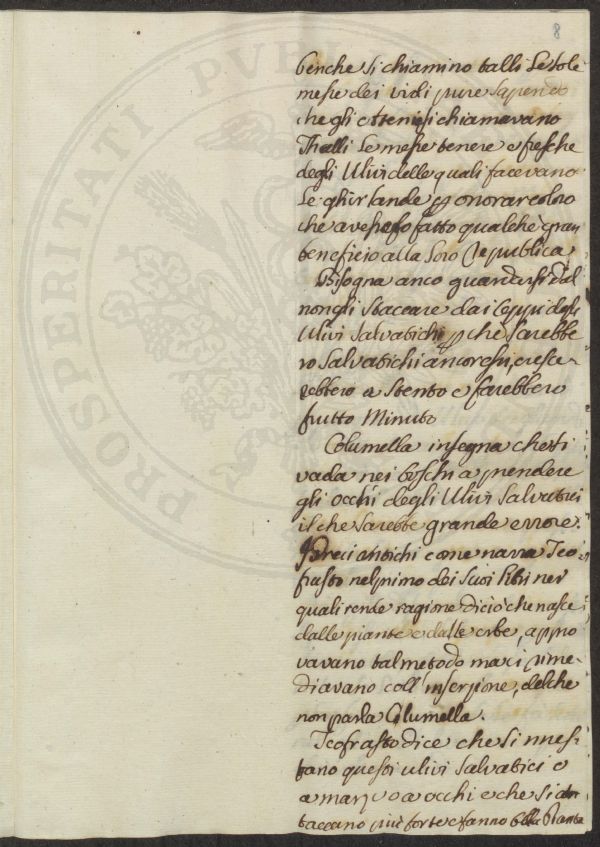 8
benche si chiamino talli Le tole
messe dei vidi pure sapendo
che gli Ateniesi chiamavano
Thalli Le messe tenere e fresche
degli Ulivi delle quali facevano
Le ghirlande p onorar colno
che avessero fatto qualche gran
beneficio alla Loro Republica
Bisogna anco guardarsi dal
non gli staccare dai Ceppi degli
Ulivi Salvatichi p che sarebbe
ro Salvatichi ancor essi, cresce
rebbero a stento e farebbero
frutto Minuto
Columella insegna che si
vada nei boschi a prendere
gli occhi degli Ulivi Salvatici
il che sarebbe grande errore.
Greci antichi come narra Teo
frasto nel primo dei suoi libri nei
quali rende ragione di ciò che nasce
dalle piante e dalle erbe, appro
vavano tal metodo ma ci rime
diavano coll' inserzione, del che
non parla Columella.
Teofrasto dice che si innesi
tano questi ulivi Salvatici o
a marzo a occhi e che si at
taccano più forte e fanno bella Pianta
PROSPERITATI PVB